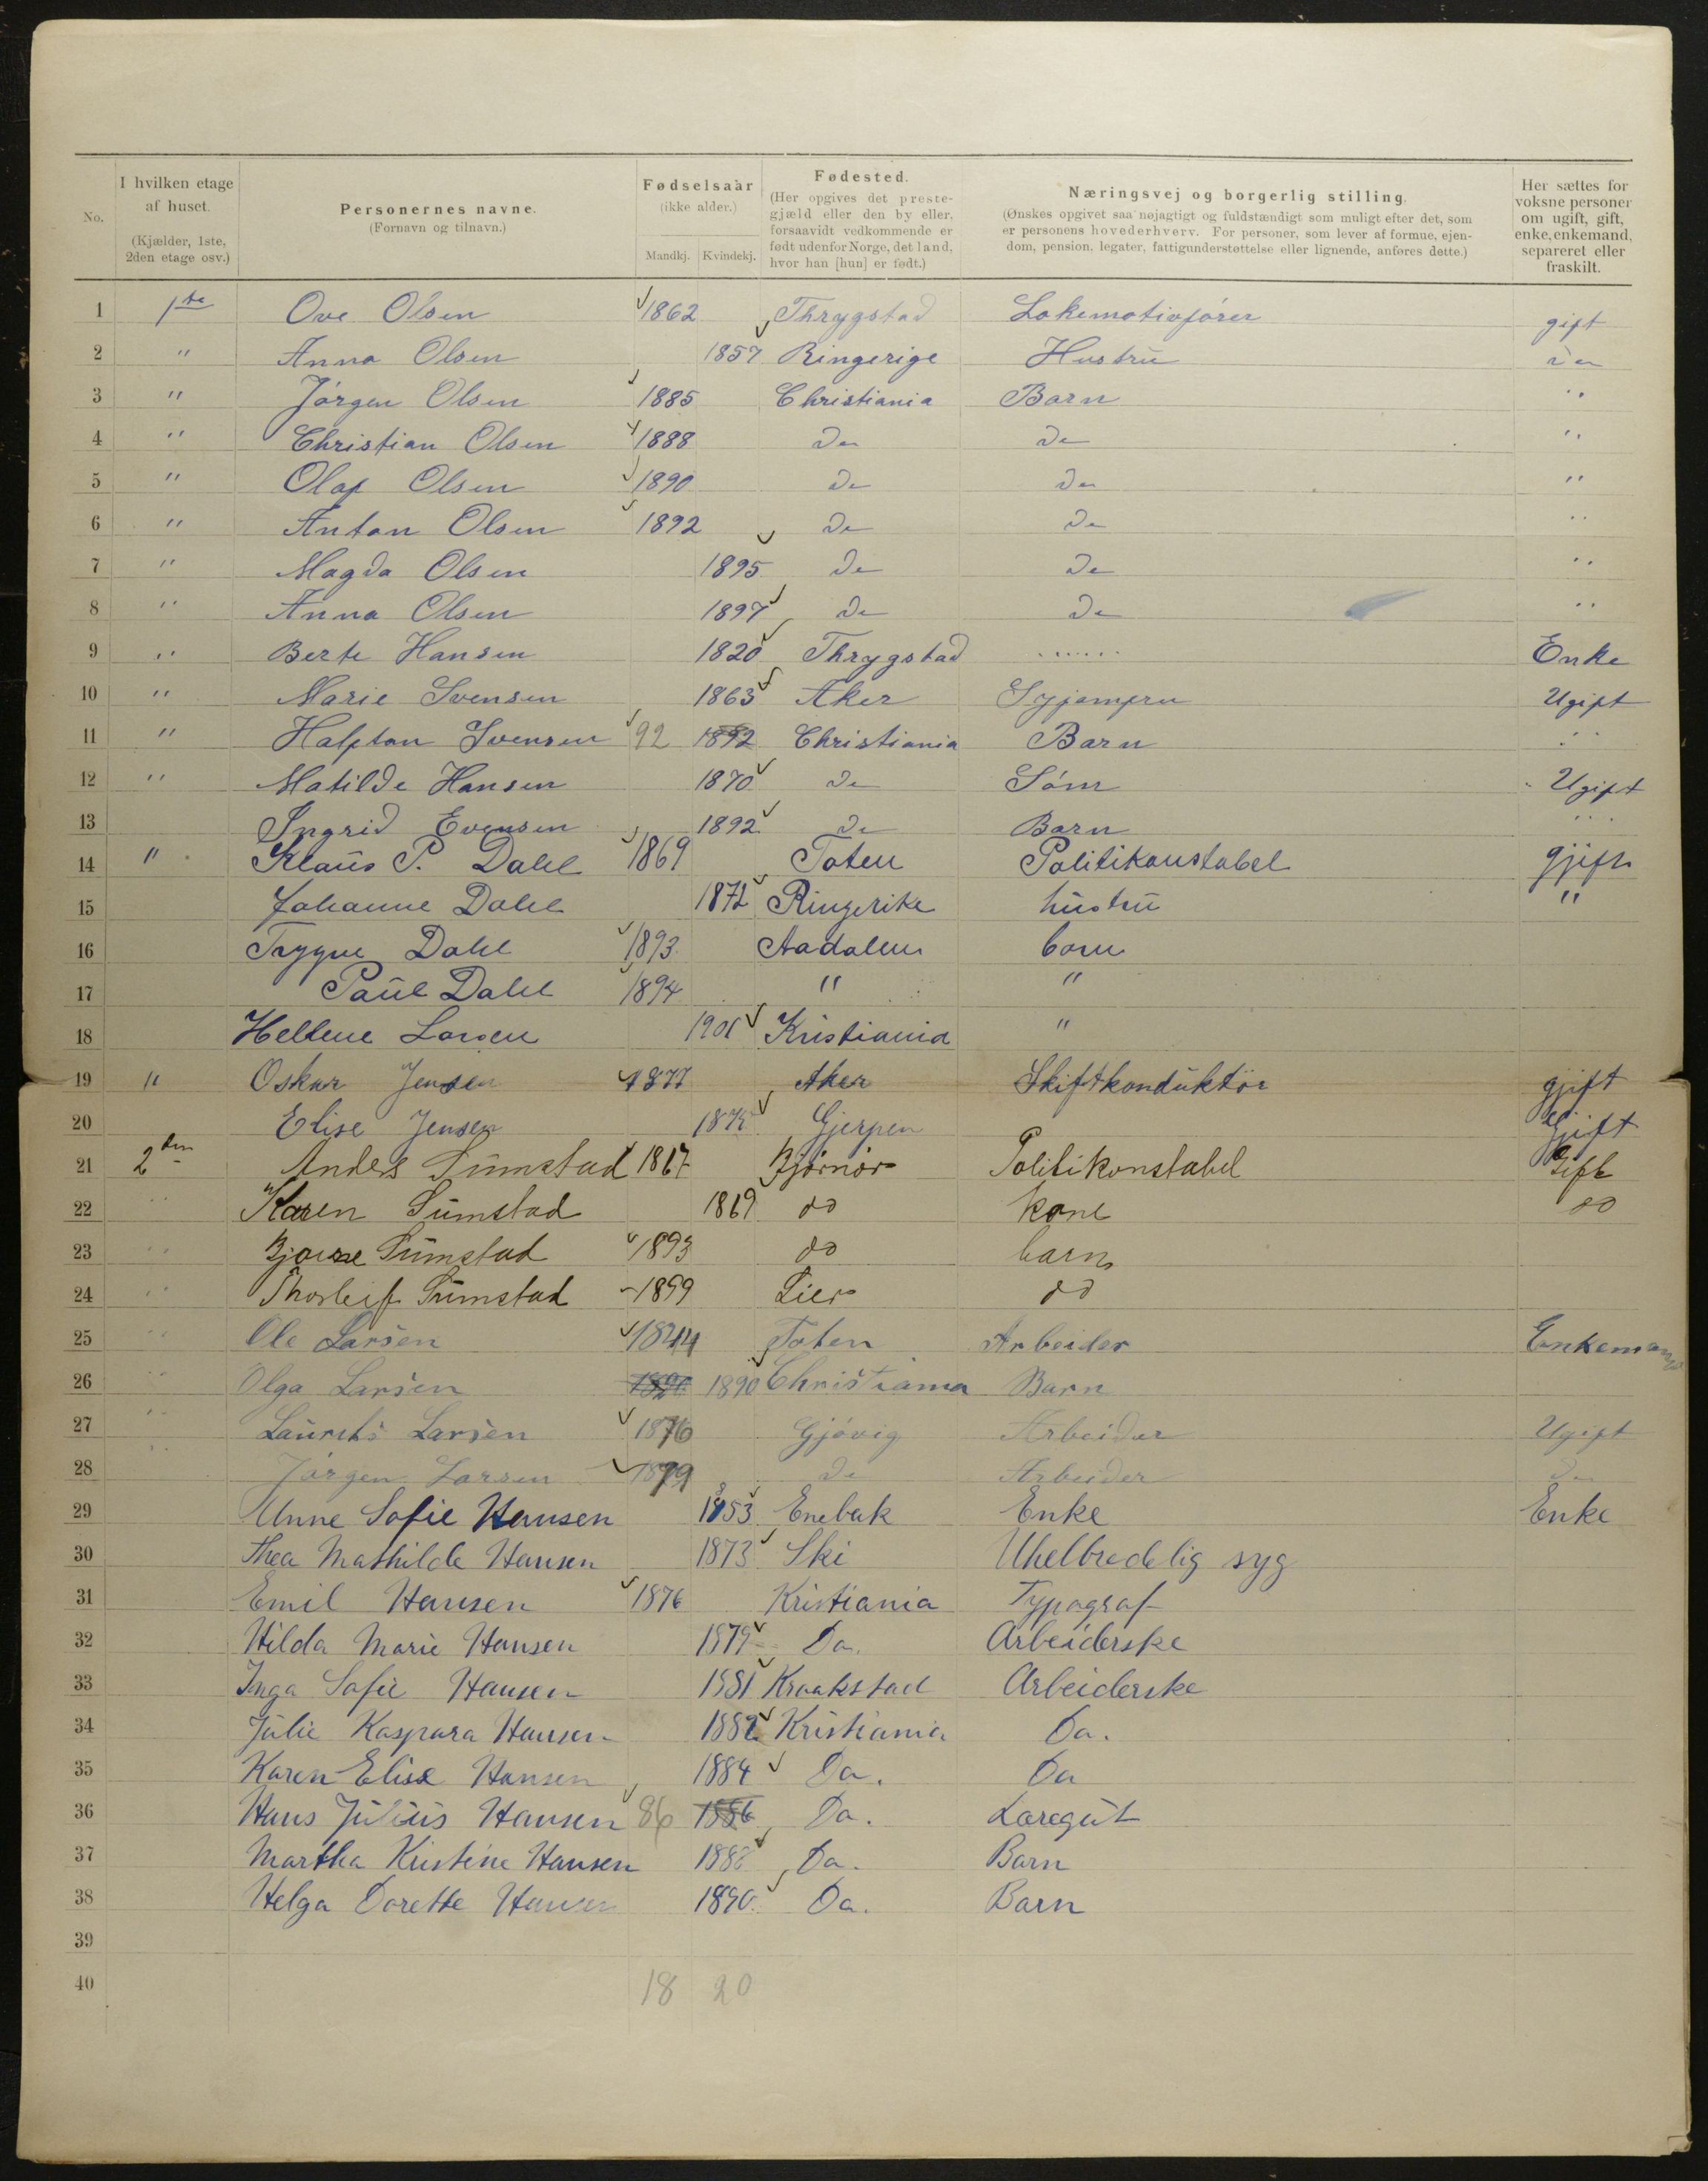 No.
I hvilken etage af huset. (Kjælder, 1ste, 2den etage osv.)
Personernes navne. (Fornavn og tilnavn.)
Fødselsaar (ikke alder.) Mandkj. Kvindekj.
Fødested. (Her opgives det prestegjæld eller den by eller, forsaavidt vedkommende er født udenfor Norge, det land, hvor han [hun] er født.)
Næringsvej og borgerlig stilling. (Ønskes opgivet saa nøjagtigt og fuldstændigt som muligt efter det, som er personens hovederhverv. For personer, som lever af formue, ejendom, pension, legater, fattigunderstøttelse eller lignende, anføres dette.)
Her sættes for voksne personer om ugift, gift, enke, enkemand, separeret eller fraskilt.
1 1ste Ove Olsen 1862 Thrygstad Lokemotivfører gift
2 " Anna Olsen 1857 Ringerige Hustru do
3 " Jørgen Olsen 1885 Christiania Barn "
4 " Christian Olsen 1888 do do "
5 " Olaf Olsen 1890 do do "
6 " Anton Olsen 1892 do do "
7 " Magda Olsen 1895 do do "
8 " Anna Olsen 1897 do do "
9 " Berte Hansen 1820 Thrygstad ...... Enke
10 " Marie Svensen 1863 Aker Syjomfru Ugift
11 " Halfton Svensen 92 1892 Christiania Barn "
12 " Matilde Hansen 1870 do Søm Ugift
13 Ingrid Evensen 1892 do Barn "
14 " Klaus P. Dahl 1869 Toten Politikonstabel gjift
15 Johanne Dahl 1872 Ringerike hustru "
16 Trygve Dahl 1893 Aadalen barn
17 Paul Dahl 1894 " "
18 Hellene Larsen 1901 Kristiania "
19 " Oskar Jensen 1877 Aker Skiftkonduktör gjift
20 Elise Jensen Gjerpen Gjift
21 2den Anders Sumstad 1867 Bjørnør Politikonstabel Gift
22 " Karen Sumstad 1869 do kone do
23 " Bjarne Sumstad 1893 do barn
24 " Thorleif Sumstad 1899 Lier do
25 " Ole Larsen 1844 Toten Arbeider Enkemand
26 " Olga Larsen 1890 Christiania Barn
27 " Laurits Larsen 1876 Gjøvig Arbeider Ugift
28 " Jørgen Larsen 1879 do Arbeider do
29 Anne Sofie Hansen 1853 Enebak Enke Enke
30 Thea Mathilde Hansen 1873 Ski Uhelbredelig syg
31 Emil Hansen 1876 Kristiania Typograf
32 Hilda Marie Hansen 1879 Do. Arbeiderske
33 Inga Sofie Hansen 1881 Kraakstad Arbeiderske
34 Julie Kaspara Hansen 1882 Kristiania Do.
35 Karen Elise Hansen 1884 Do. Do
36 Hans Julius Hansen 86 1886 Do. Læregut
37 Martha Kristine Hansen 1888 Do. Barn
38 Helga Dorette Hansen 1890 Do. Barn
39
40 18 20